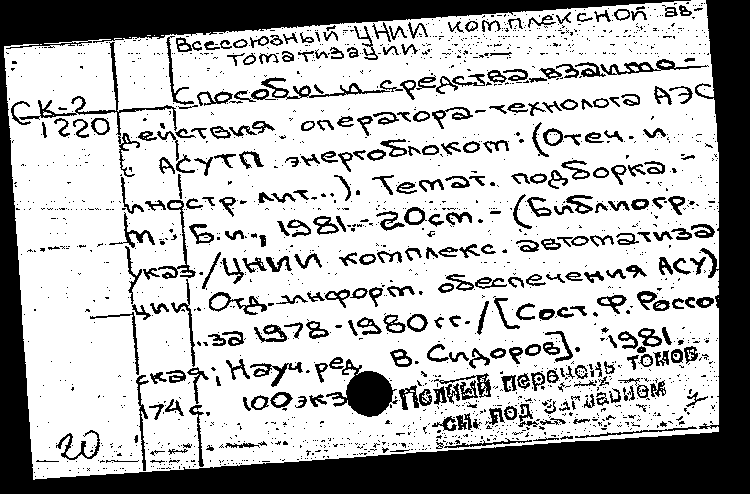 Всесоюзный ЦНИИ комплексной ав-
томатизации.
СК-2
1220
Способы и средства взаимо-
действия оператора-технолога АЭС
с АСУТП энергоблоком: (Отеч. и
иностр. лит...). Темат. подборка.-
М.: Б.и., 1981.-20см.-(Библиогр.
указ./ЦНИИ комплекс. автоматиза
ции. Отд. информ. обеспечения АСУ)
...за 1978-1980 гг./[Сост. Ф. Россов
ская; Науч. ред. В. Сидоров]. 1981.
174 с. 100 экз
Полный перечень томов
см. под заглавием
20